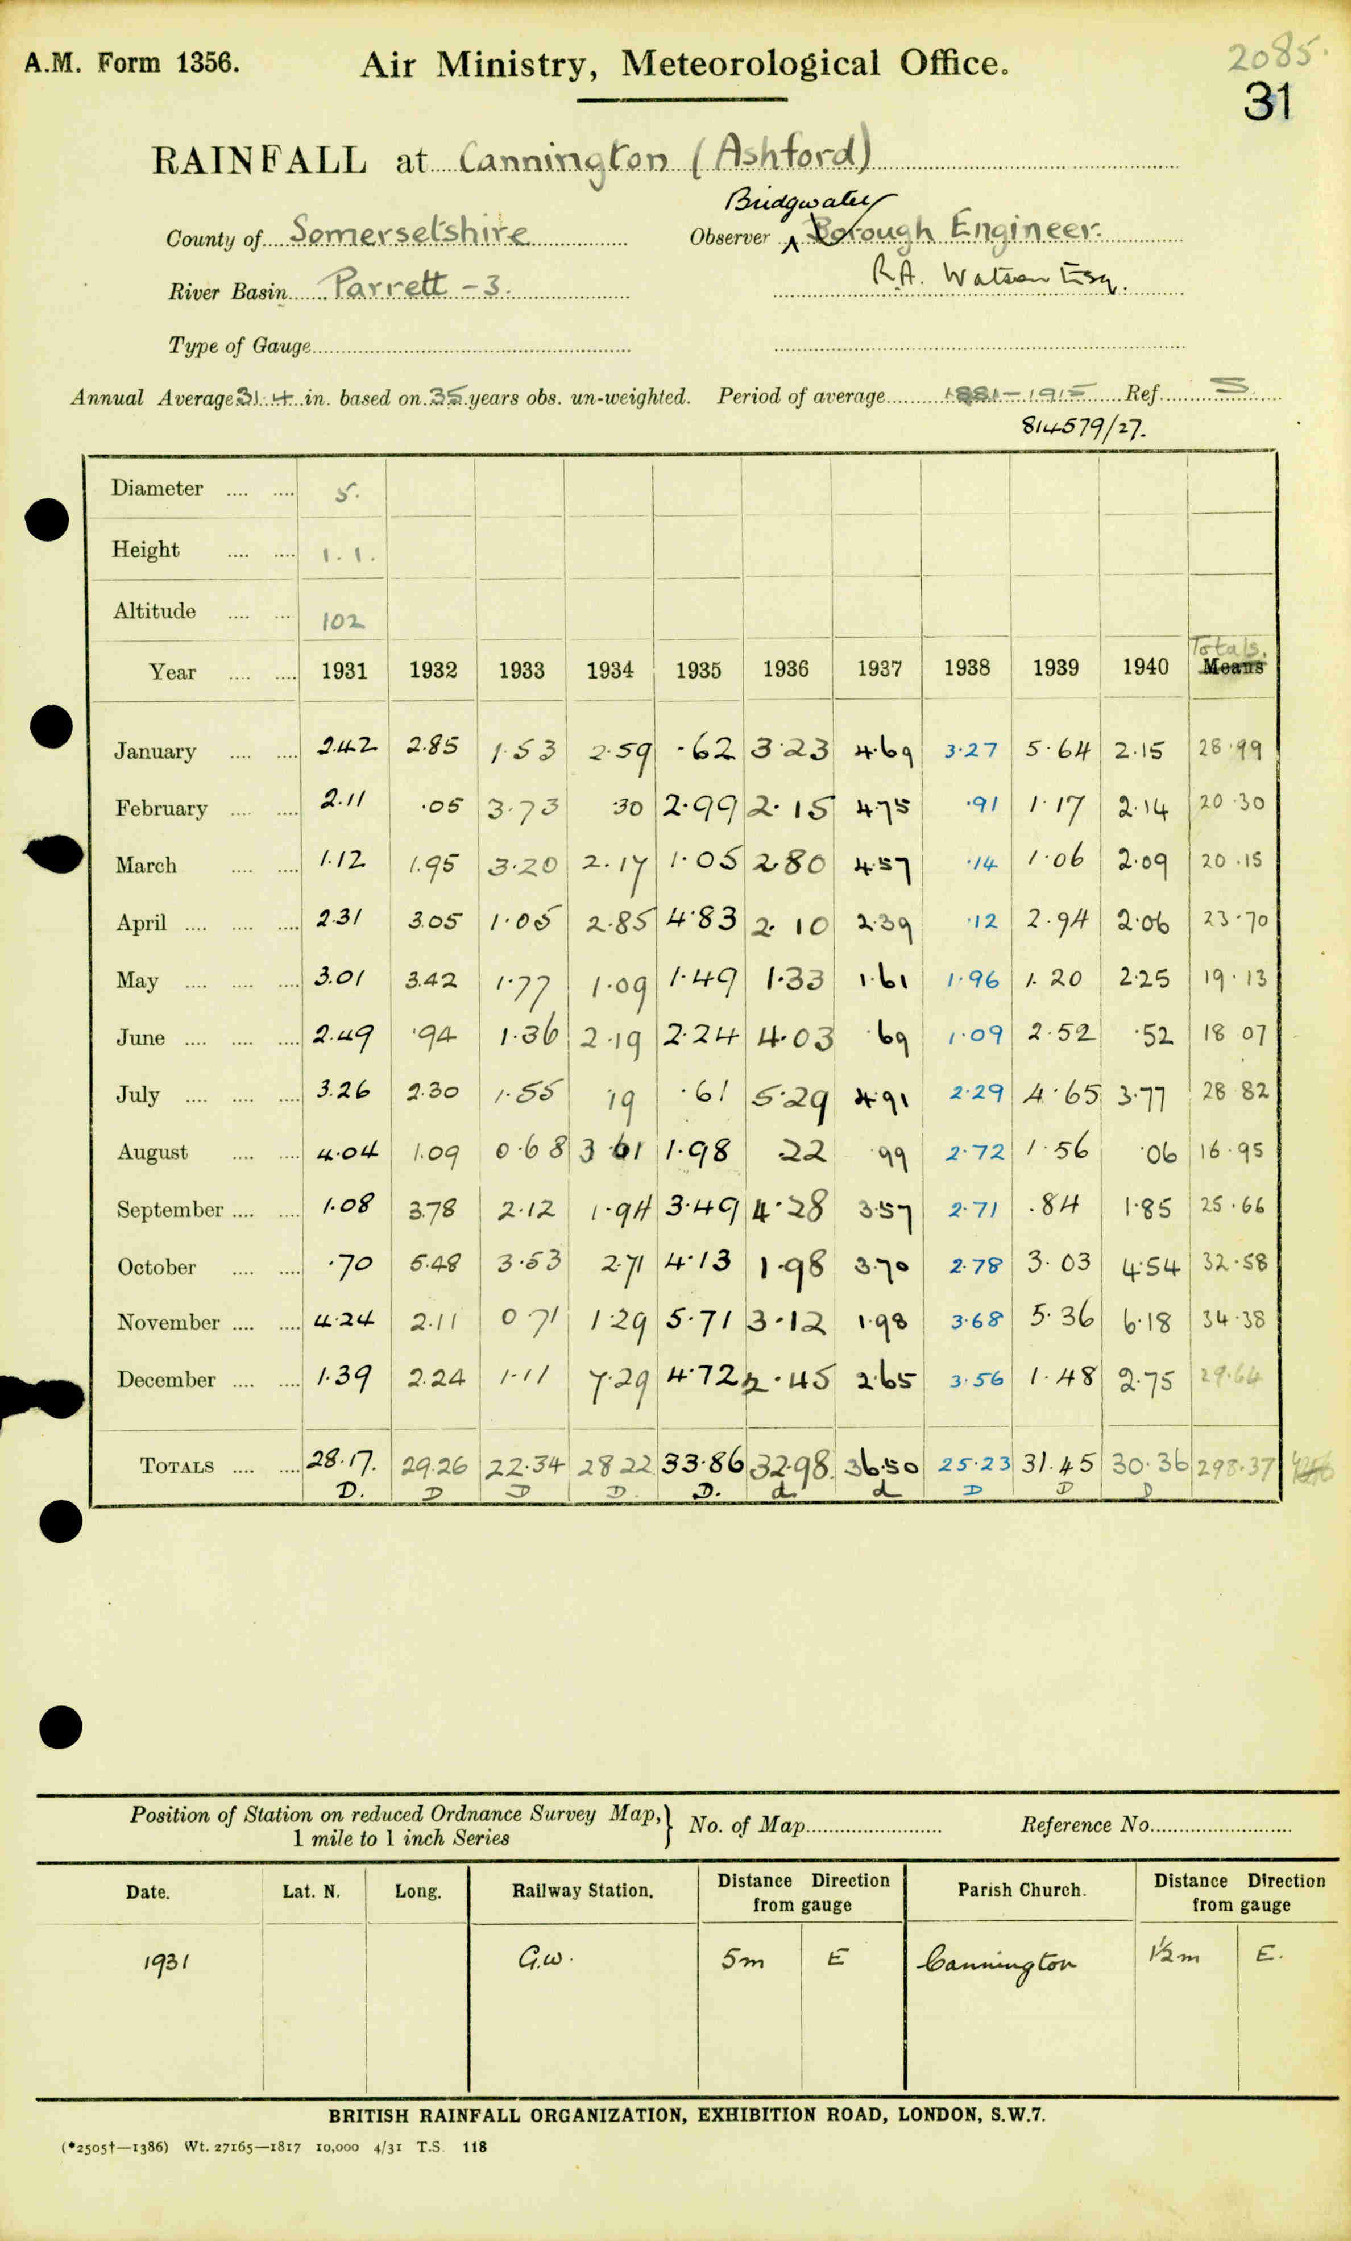 A.M. Form 1356.
Air Ministry, Meteorological Office.
2085.
31
RAINFALL at Cannington (Ashford)
Bridgwater
County of Somersetshire Observer Borough Engineer.
River Basin Parrett - 3. R.A. Watson Esq.
Type of Gauge
Annual Average 31.4 in. based on 35 years obs. un-weighted. Period of average 1881-1915 Ref. S
814579/27.
Diameter 5.
Height 1.1.
Altitude 102
Totals.
Year 1931 1932 1933 1934 1935 1936 1937 1938 1939 1940 Means
January 2.42 2.85 1.53 2.59 .62 3.23 4.69 3.27 5.64 2.15 28.99
February 2.11 .05 3.73 30 2.99 2.15 4.75 .91 1.17 2.14 20.30
March 1.12 1.95 3.20 2.17 1.05 2.80 4.57 .14 1.06 2.09 20.15
April 2.31 3.05 1.05 2.85 4.83 2.10 2.39 .12 2.94 2.06 23.70
May 3.01 3.42 1.77 1.09 1.49 1.33 1.61 1.96 1.20 2.25 19.13
June 2.49 .94 1.36 2.19 2.24 4.03 .69 1.09 2.52 .52 18 07
July 3.26 2.30 1.55 19 .61 5.29 4.91 2.29 4.65 3.77 28 82
August 4.04 1.09 0.68 3 61 1.98 .22 .99 2.72 1.56 .06 16.95
September 1.08 3.78 2.12 1.94 3.49 4.28 3.57 2.71 .84 1.85 25.66
October .70 5.48 3.53 2.71 4.13 1.98 3.70 2.78 3.03 4.54 32.58
November 4.24 2.11 0 71 1.29 5.71 3.12 1.98 3.68 5.36 6.18 34.38
December 1.39 2.24 1.11 7.29 4.72 2.45 2.65 3.56 1.48 2.75 29.64
TOTALS 28.17. 29.26 22.34 28 22 33.86 32.98. 36.50 25.23 31.45 30.36 298.37
D. D D D. D. d. d D D D
Position of Station on reduced Ordnance Survey Map, No. of Map Reference No.
1 mile to 1 inch Series
Date. Lat. N. Long. Railway Station. Distance Direction from gauge Parish Church. Distance Direction from gauge
1931 G.W. 5m E Cannington 1½m E.
BRITISH RAINFALL ORGANIZATION, EXHIBITION ROAD, LONDON, S.W.7.
(*2505†—1386) Wt. 27165—1817 10,000 4/31 T.S. 118